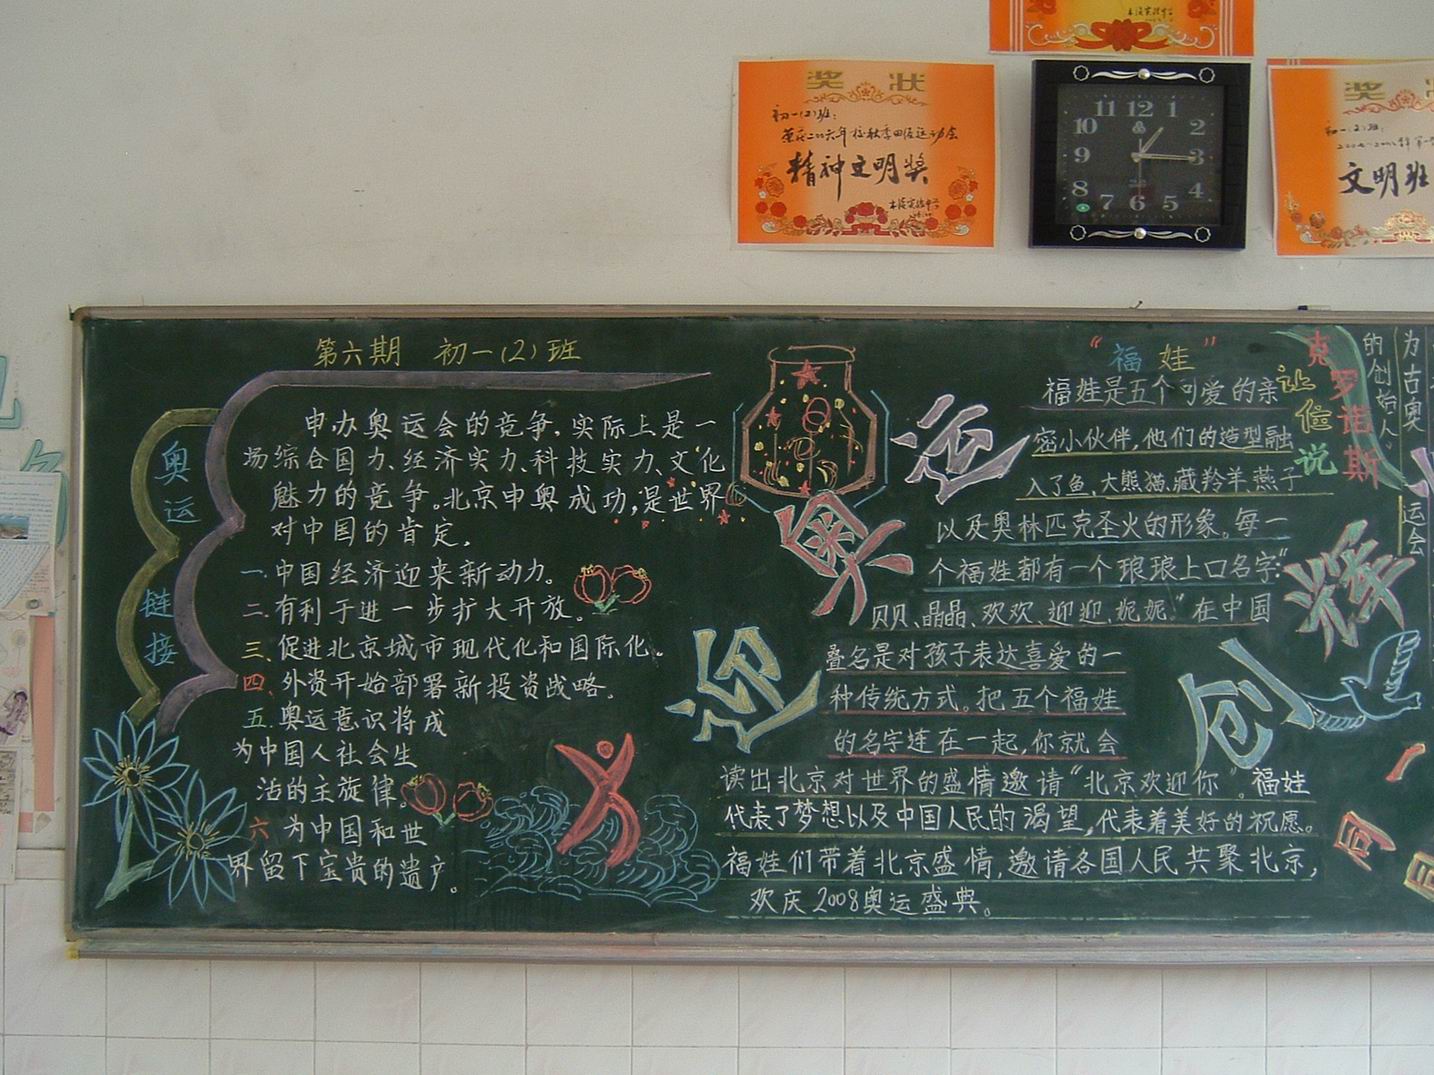 奖状
初一(2)班:
荣获二〇〇六年校秋季田径运动会
精神文明奖
11 12 1
10 2
9 3
8 4
7 6 5
奖
初一(2)班:
文明班
第六期 初一(2)班
奥运
链接
申办奥运会的竞争,实际上是一
场综合国力、经济实力、科技实力、文化
魅力的竞争。北京申奥成功,是世界
对中国的肯定。
一.中国经济迎来新动力。
二.有利于进一步扩大开放。
三、促进北京城市现代化和国际化。
四、外资开始部署新投资战略。
五.奥运意识将成
为中国人社会生
活的主旋律。
六 为中国和世
界留下宝贵的遗产。
迎奥运
"福娃"
福娃是五个可爱的亲
密小伙伴,他们的造型融
入了鱼、大熊猫、藏羚羊、燕子
以及奥林匹克圣火的形象。每一
个福娃都有一个琅琅上口名字:"
贝贝、晶晶、欢欢、迎迎、妮妮。"在中国
叠名是对孩子表达喜爱的一
种传统方式。把五个福娃
的名字连在一起,你就会
读出北京对世界的盛情邀请"北京欢迎你"。福娃
代表了梦想以及中国人民的渴望,代表着美好的祝愿。
福娃们带着北京盛情,邀请各国人民共聚北京,
欢庆2008奥运盛典。
创辉
让位说
克罗诺斯
的创始人
为古奥
运会